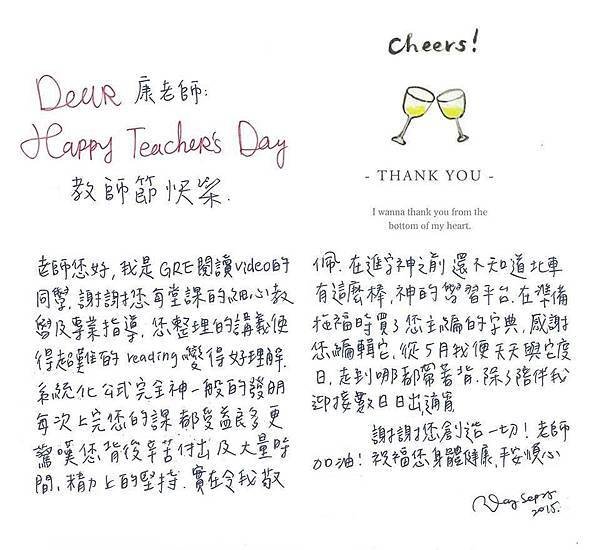 Dear 康老師:
Happy Teacher's Day
教師節快樂.
老師您好,我是GRE閱讀video的
同學,謝謝您每堂課的細心教
學及專業指導,您整理的講義使
得超難的reading變得好理解.
系統化公式完全神一般的發明
每次上完您的課都受益良多更
驚嘆您背後辛苦付出及大量時
間,精力上的堅持.實在令我敬
Cheers!
- THANK YOU -
I wanna thank you from the
bottom of my heart.
佩.在進字神之前還不知道北車
有這麼棒,神的學習平台.在準備
托福時買了您主編的字典,感謝
您編輯它,從5月我便天天與它度
日,走到哪都帶著背.除了陪伴我
迎接數日日出
謝謝您創造一切!老師
加油!祝福您身體健康,平安順心
2015.